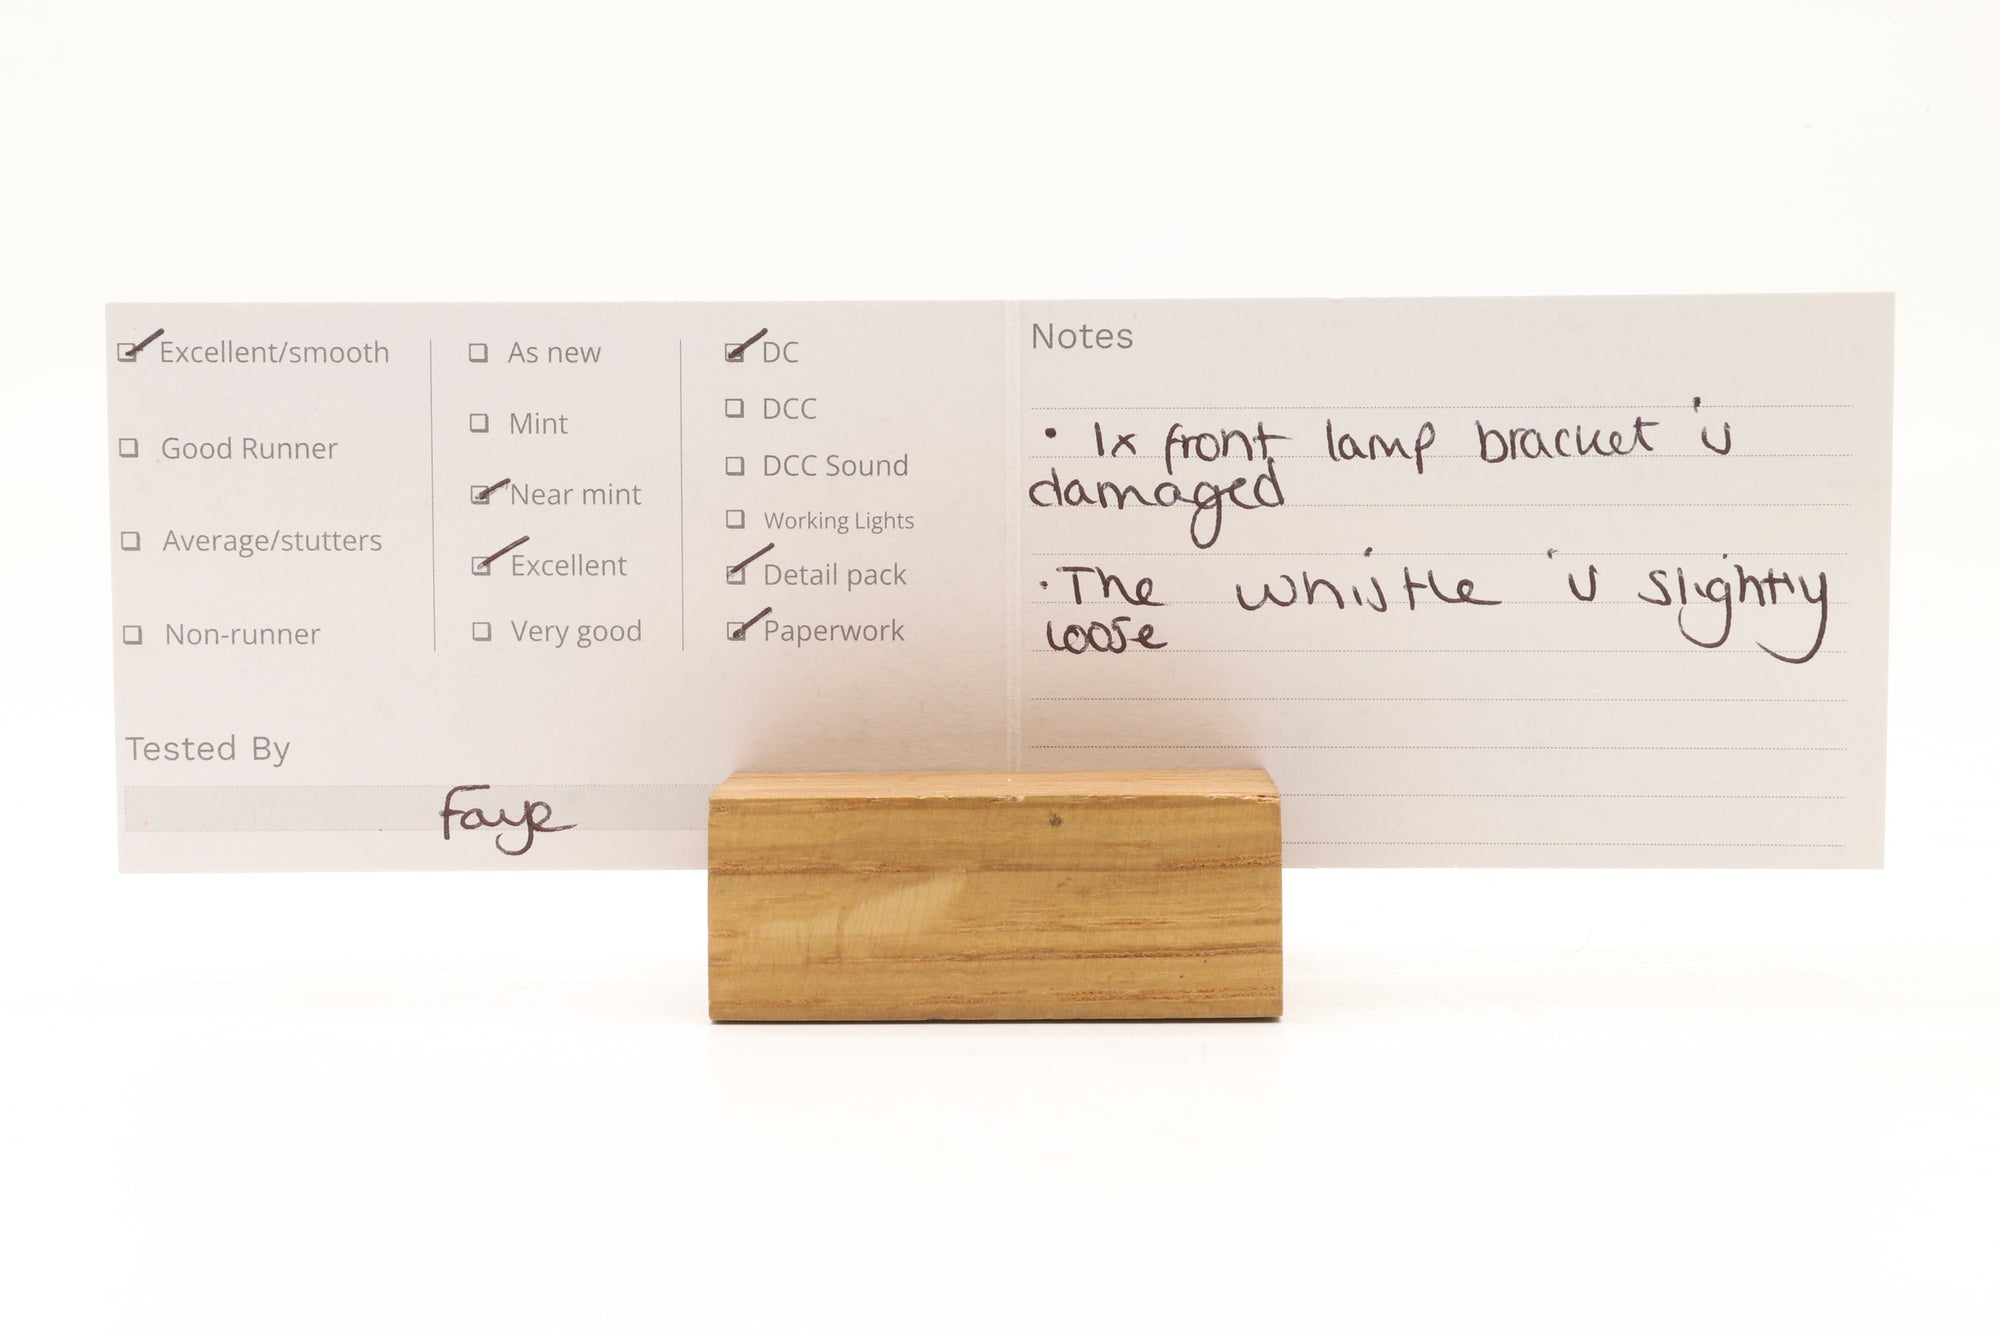 Excellent/smooth
Good Runner
Average/stutters
Non-runner
As new
Mint
Near mint
Excellent
Very good
DC
DCC
DCC Sound
Working Lights
Detail pack
Paperwork
Tested By
Faye
Notes
• 1x front lamp bracket is
damaged
• The whistle is slightly
loose